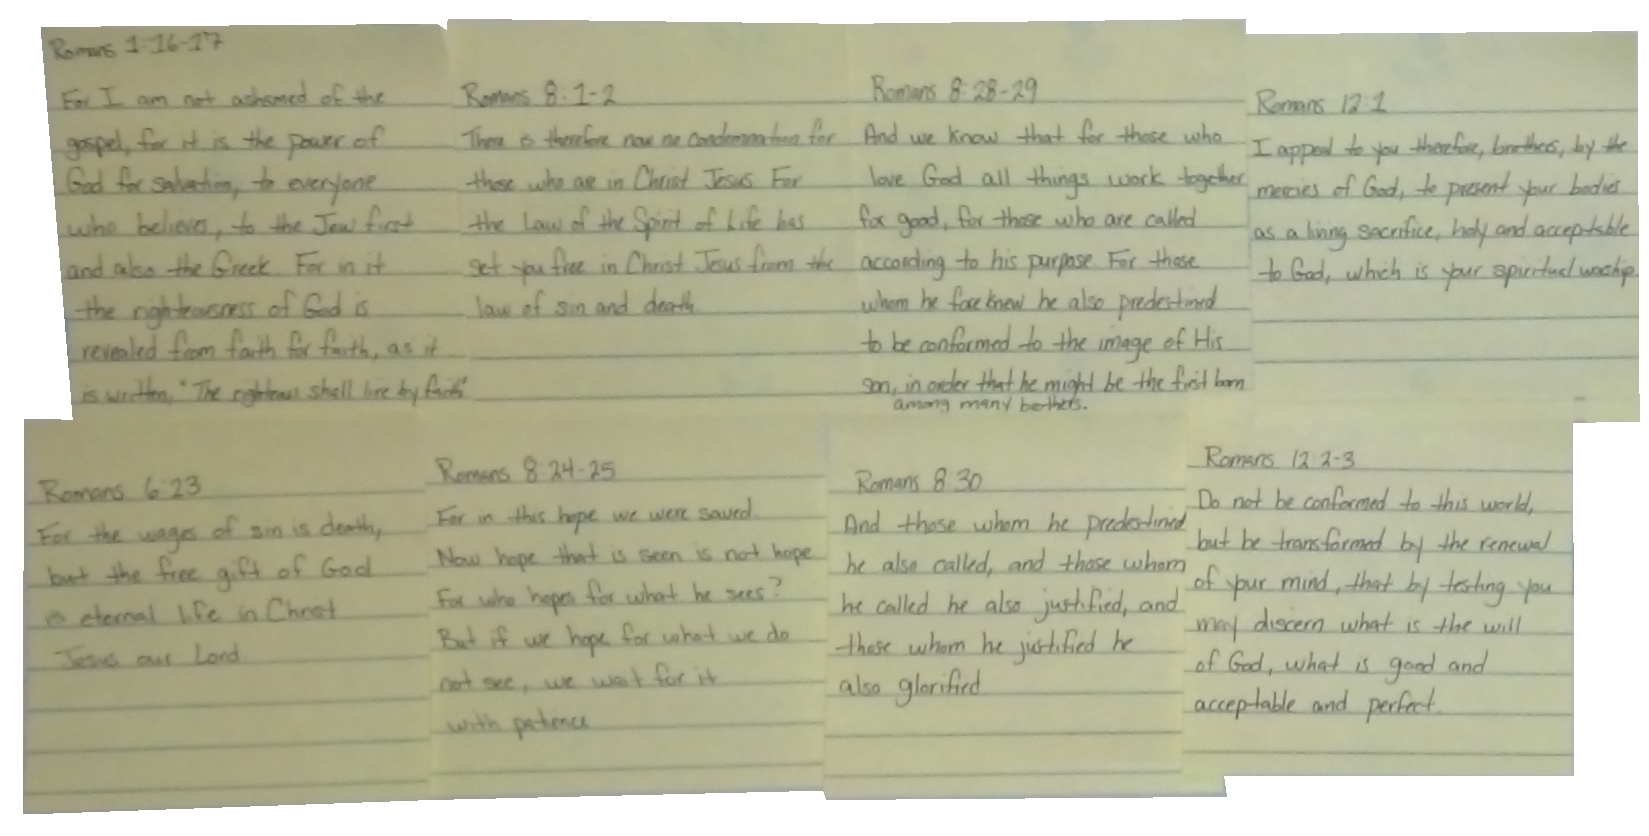 Romans 1:16-17
For I am not ashamed of the
gospel, for it is the power of
God for salvation, to everyone
who believes, to the Jew first
and also the Greek. For in it
the righteousness of God is
revealed from faith for faith, as it
is written, "The righteous shall live by faith"
Romans 8:1-2
There is therefore now no condemnation for
those who are in Christ Jesus For
the Law of the Spirit of Life has
set you free in Christ Jesus from the
law of sin and death
Romans 8:28-29
And we know that for those who
love God all things work together
for good, for those who are called
according to his purpose. For those
whom he foreknew he also predestined
to be conformed to the image of His
son, in order that he might be the first born
among many brothers.
Romans 12:1
I appeal to you therefore, brothers, by the
mercies of God, to present your bodies
as a living sacrifice, holy and acceptable
to God, which is your spiritual worship.
Romans 6:23
For the wages of sin is death,
but the free gift of God
is eternal life in Christ
Jesus our Lord
Romans 8:24-25
For in this hope we were saved.
Now hope that is seen is not hope
For who hopes for what he sees?
But if we hope for what we do
not see, we wait for it
with patience
Romans 8:30
And those whom he predestined
he also called, and those whom
he called he also justified, and
those whom he justified he
also glorified
Romans 12:2-3
Do not be conformed to this world,
but be transformed by the renewal
of your mind, that by testing you
may discern what is the will
of God, what is good and
acceptable and perfect.